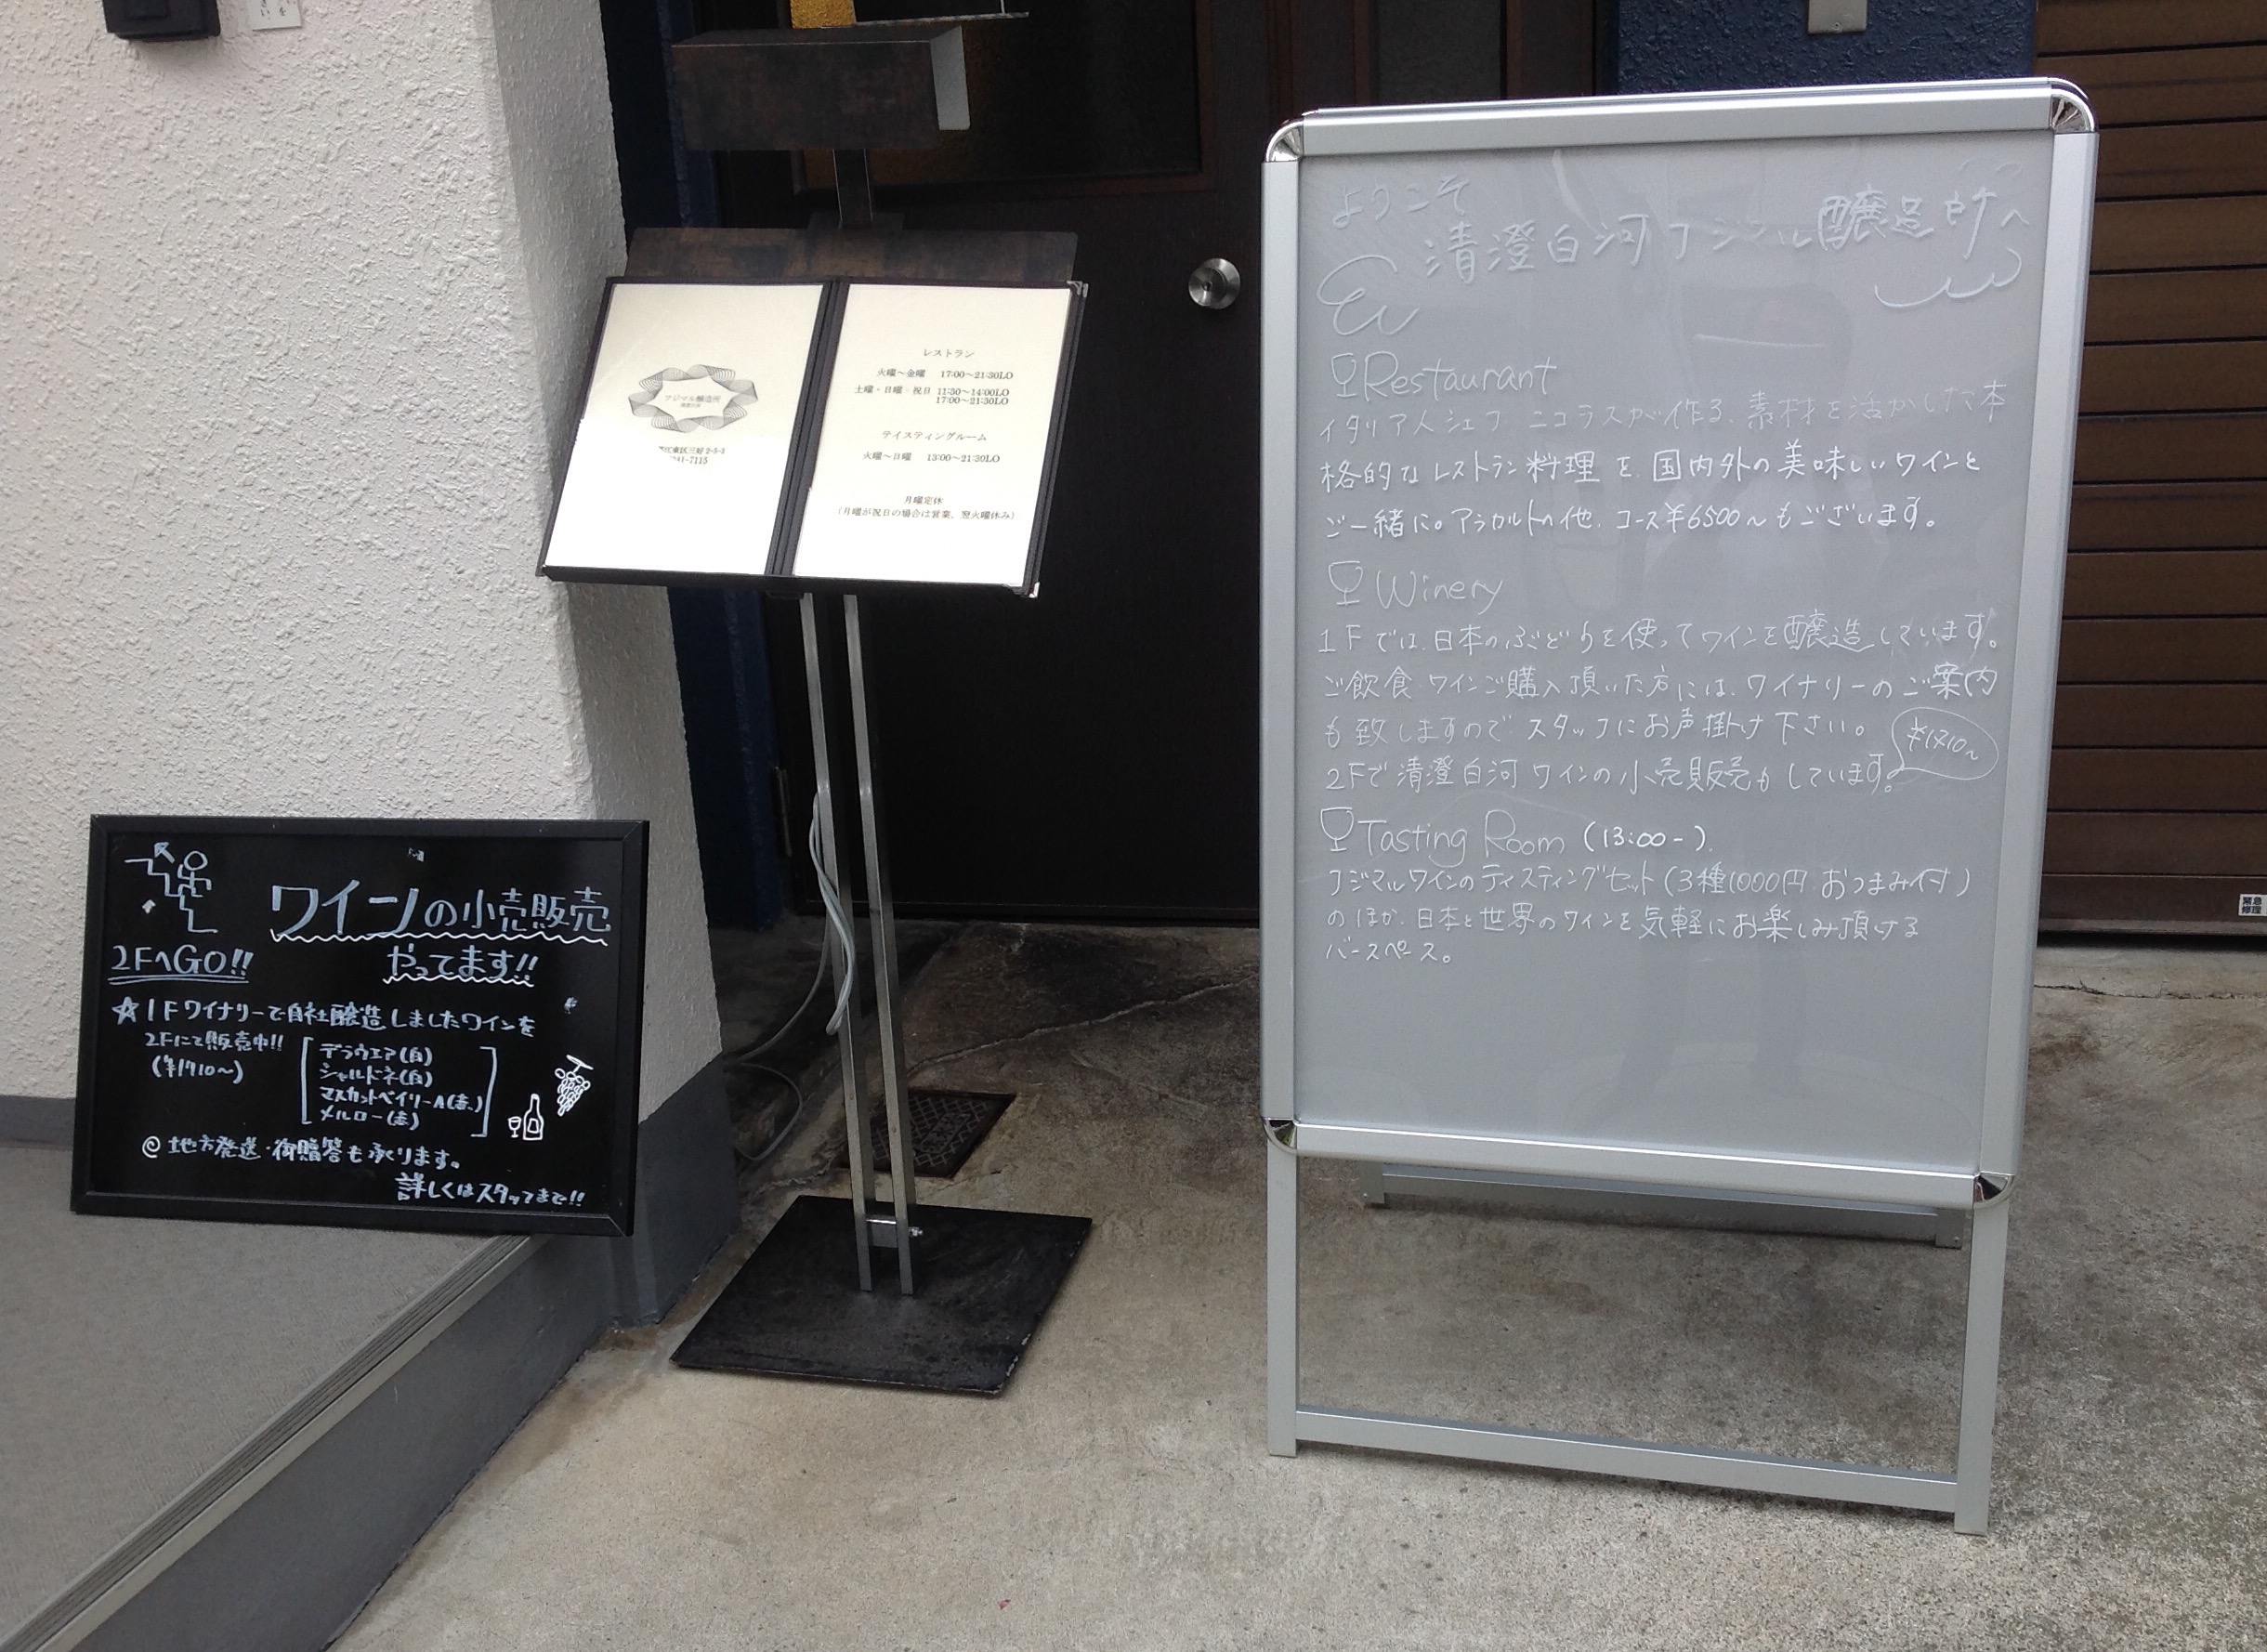 フジマル醸造所
江東区三好2-5-3
レストラン
火曜〜金曜 17:00〜21:30LO
土曜・日曜・祝日 11:30〜14:00LO
17:00〜21:30LO
テイスティングルーム
火曜〜日曜 13:00〜21:30LO
月曜定休
(月曜が祝日の場合は営業、翌火曜休み)
ワインの小売販売
やってます!!
2FへGO!!
☆1Fワイナリーで自社醸造しましたワインを
2Fにて販売中!!
(¥1710〜)
デラウェア(白)
シャルドネ(白)
マスカットベイリーA(赤)
メルロー(赤)
地方発送・御贈答も承ります。
詳しくはスタッフまで!!
ようこそ
清澄白河フジマル醸造所へ
Restaurant
イタリア人シェフ ニコラスが作る、素材を活かした本
格的なレストラン料理を国内外の美味しいワインと
ご一緒に。アラカルトの他、コース¥6500〜もございます。
Winery
1Fでは、日本のぶどうを使ってワインを醸造しています。
ご飲食、ワインご購入頂いた方には、ワイナリーのご案内
も致しますので スタッフにお声掛け下さい。
2Fで清澄白河ワインの小売販売もしています。
¥1710〜
Tasting Room (13:00-)
フジマルワインのティスティングセット(3種1000円 おつまみ付)
のほか、日本と世界のワインを気軽にお楽しみ頂ける
バースペース。
緊急
修理